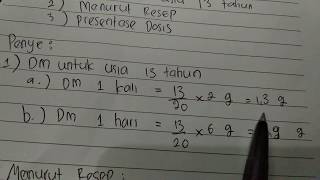 2) Menurut Resep
3) Presentase Dosis
Penye :
1) DM untuk usia 13 tahun
a.) DM 1 kali = 13/20 x 2 g = 1,3 g
b.) DM 1 hari = 13/20 x 6 g = g g
Menurut Resep :